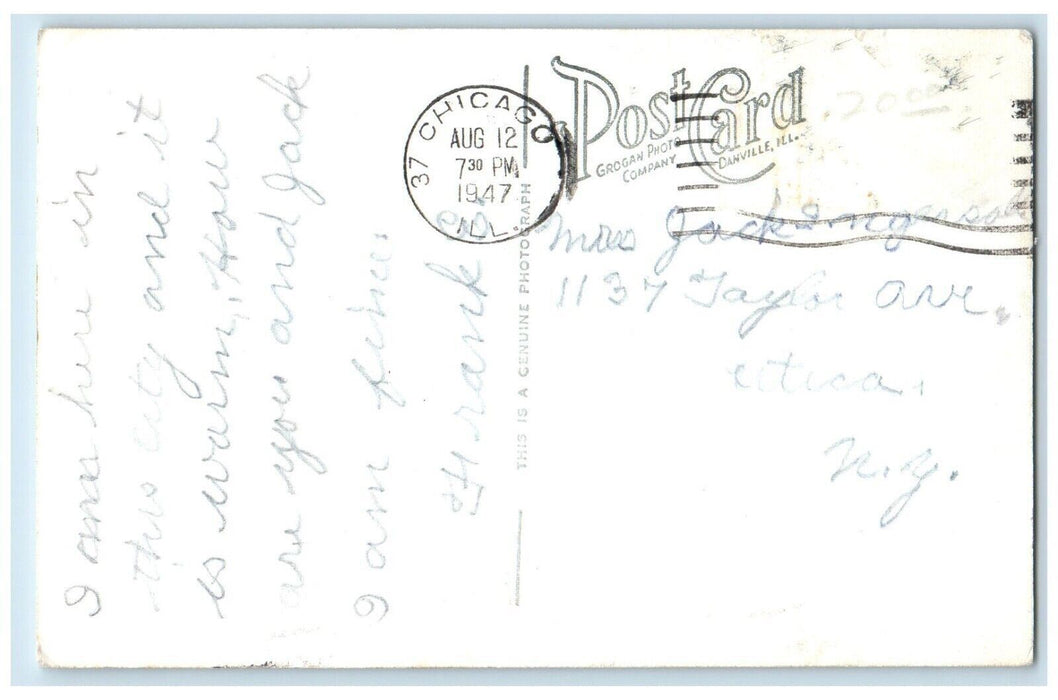 I am here in
this city and it
is warm, How
are you and Jack
I am fine.
Frank
THIS IS A GENUINE PHOTOGRAPH
37 CHICAGO
AUG 12
7 30 PM
1947
ILL.
Post Card
GROGAN PHOTO COMPANY DANVILLE, ILL.
20.00
Mrs Jack Ingersoll
1137 Taylor Ave.
Utica.
N.Y.